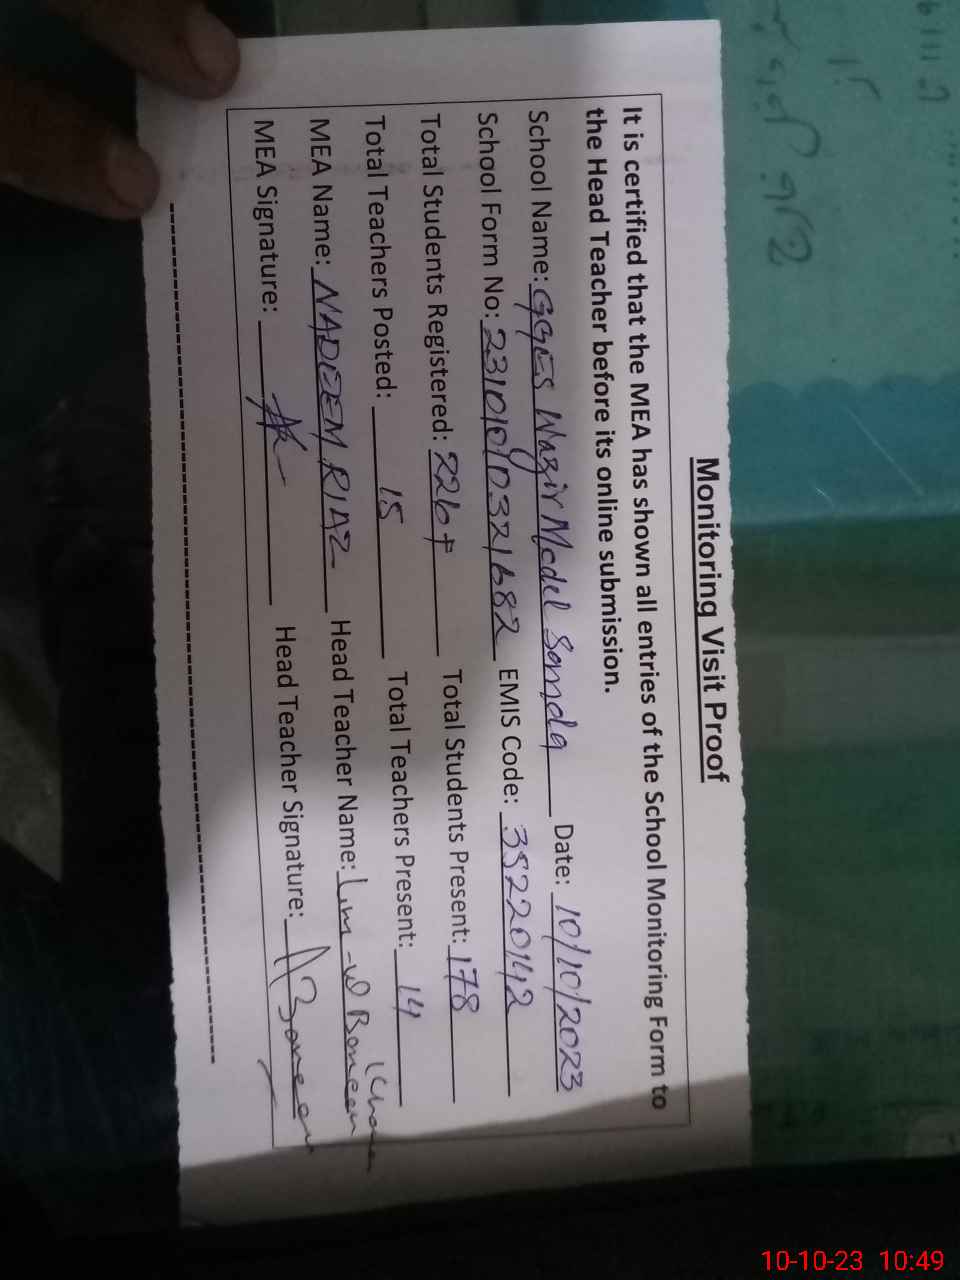 Monitoring Visit Proof
It is certified that the MEA has shown all entries of the School Monitoring Form to
the Head Teacher before its online submission.
School Name: GGES Wazir Model Samda Date: 10/10/2023
School Form No: 23101010321682 EMIS Code: 35220142
Total Students Registered: 226+ Total Students Present: 178
Total Teachers Posted: 15 Total Teachers Present: 14
MEA Name: NADEEM RIAZ Head Teacher Name:
MEA Signature: Head Teacher Signature:
10-10-23 10:49